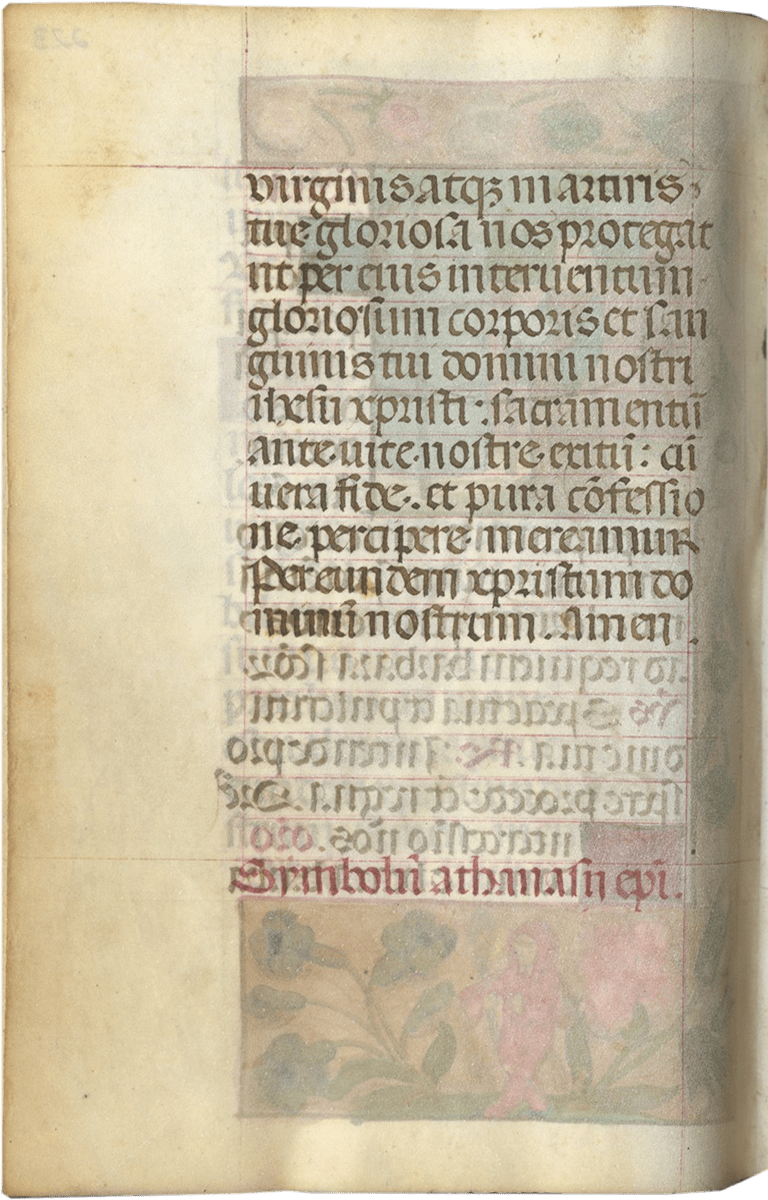 virginis atqꝫ martiris
tue gloriosa nos protegat
ut per eius interuentum
gloriosum corporis et san
guinis tui domini nostri
ihesu xpristi : sacramentū
ante uite nostre exitū : cū
uera fide . et pura cōfessio
ne percipere mereamur
Per eundem xpristum do
minū nostrum . Amen .
Symbolū athanasij epi .